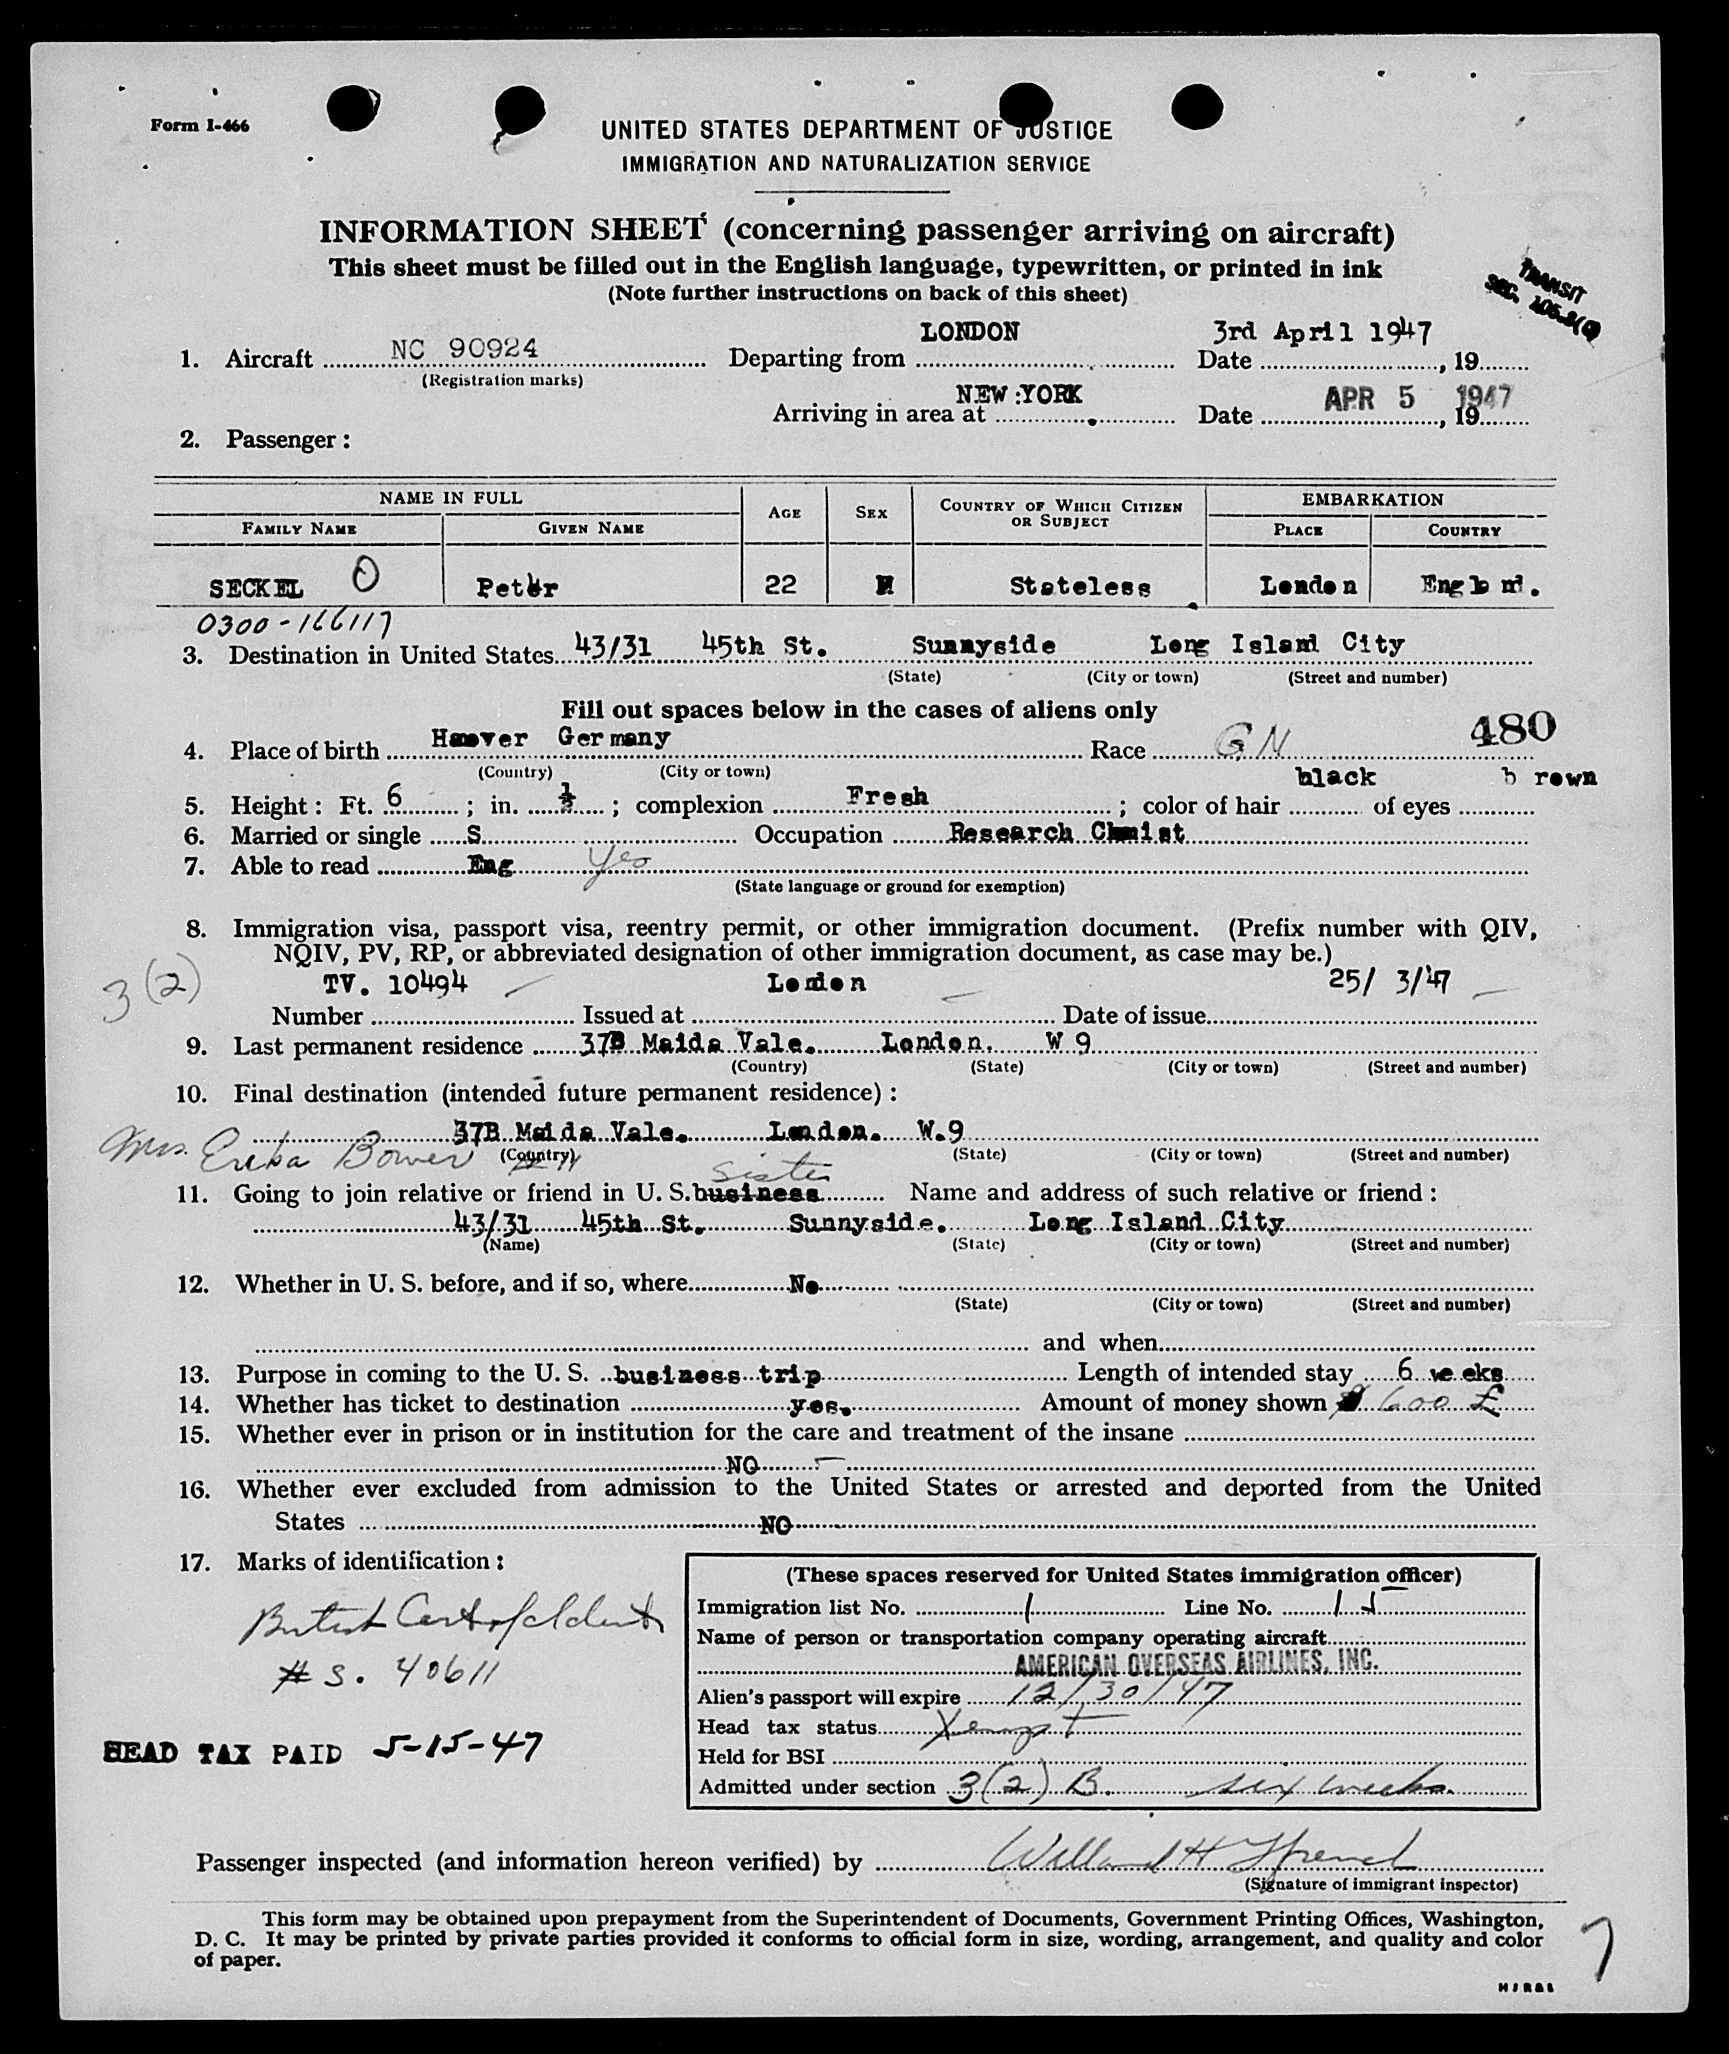 Form I-466
UNITED STATES DEPARTMENT OF JUSTICE
IMMIGRATION AND NATURALIZATION SERVICE
INFORMATION SHEET (concerning passenger arriving on aircraft)
This sheet must be filled out in the English language, typewritten, or printed in ink
(Note further instructions on back of this sheet)
TRANSIT
SEC. 105.3(
1. Aircraft NC 90924 Departing from LONDON Date 3rd April 1947, 19
(Registration marks)
Arriving in area at NEW:YORK Date APR 5 1947, 19
2. Passenger:
NAME IN FULL AGE SEX COUNTRY OF WHICH CITIZEN OR SUBJECT EMBARKATION
FAMILY NAME GIVEN NAME PLACE COUNTRY
SECKEL O Peter 22 M Stateless London England.
0300-166117
3. Destination in United States 43/31 45th St. Sunnyside Long Island City
(State) (City or town) (Street and number)
Fill out spaces below in the cases of aliens only
480
4. Place of birth Hanover Germany Race G.N
(Country) (City or town)
5. Height: Ft. 6; in. ½; complexion Fresh; color of hair black of eyes brown
6. Married or single S Occupation Research Chemist
7. Able to read Eng Yes
(State language or ground for exemption)
8. Immigration visa, passport visa, reentry permit, or other immigration document. (Prefix number with QIV,
NQIV, PV, RP, or abbreviated designation of other immigration document, as case may be.)
3(2) TV. 10494 London 25/ 3/47
Number Issued at Date of issue
9. Last permanent residence 37B Maida Vale. London. W 9
(Country) (State) (City or town) (Street and number)
10. Final destination (intended future permanent residence):
37B Maida Vale. London. W.9
Mrs. Erika Bower (Country) (State) (City or town) (Street and number)
sister
11. Going to join relative or friend in U. S. business Name and address of such relative or friend:
43/31 45th St. Sunnyside. Long Island City
(Name) (State) (City or town) (Street and number)
12. Whether in U. S. before, and if so, where No
(State) (City or town) (Street and number)
and when
13. Purpose in coming to the U. S. business trip Length of intended stay 6 weeks
14. Whether has ticket to destination yes. Amount of money shown 600 £
15. Whether ever in prison or in institution for the care and treatment of the insane
NO
16. Whether ever excluded from admission to the United States or arrested and deported from the United
States NO
17. Marks of identification:
British Cert of Identity
# S. 40611
HEAD TAX PAID 5-15-47
(These spaces reserved for United States immigration officer)
Immigration list No. 1 Line No. 15
Name of person or transportation company operating aircraft
AMERICAN OVERSEAS AIRLINES, INC.
Alien's passport will expire 12/30/47
Head tax status Xempt
Held for BSI
Admitted under section 3(2) B. six weeks.
Passenger inspected (and information hereon verified) by Willard H French
(Signature of immigrant inspector)
This form may be obtained upon prepayment from the Superintendent of Documents, Government Printing Offices, Washington,
D. C. It may be printed by private parties provided it conforms to official form in size, wording, arrangement, and quality and color
of paper.
7